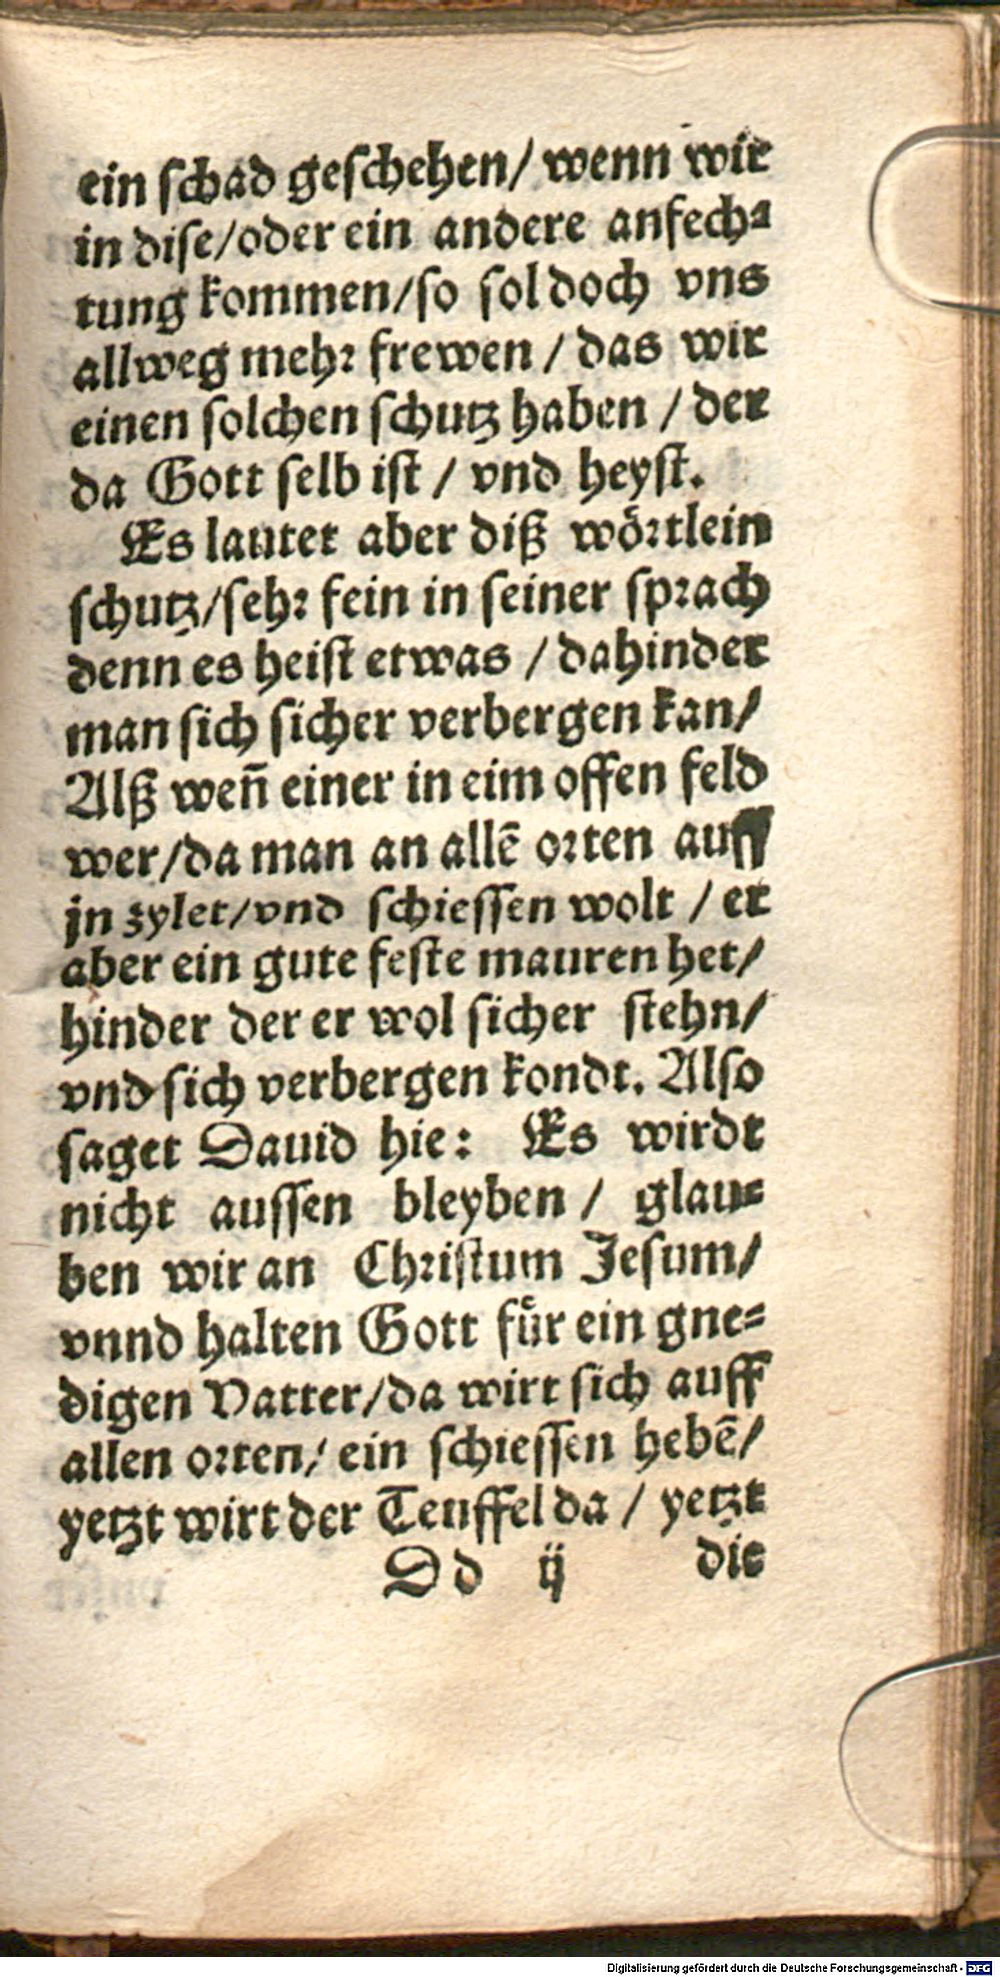 ein schad geschehen/ wenn wir
in dise/oder ein andere anfech-
tung kommen/so sol doch vns
allweg mehr frewen / das wir
einen solchen schutz haben / der
da Gott selb ist / vnd heyst.
Es lautet aber diß wörtlein
schutz/sehr fein in seiner sprach
denn es heist etwas / dahinder
man sich sicher verbergen kan/
Alß weñ einer in eim offen feld
wer/da man an allẽ orten auff
jn zylet/vnd schiessen wolt / er
aber ein gute feste mauren het/
hinder der er wol sicher stehn/
vnd sich verbergen kondt. Also
saget Dauid hie: Es wirdt
nicht aussen bleyben / glau-
ben wir an Christum Jesum/
vnnd halten Gott für ein gne-
digen Vatter/da wirt sich auff
allen orten/ ein schiessen hebẽ/
yetzt wirt der Teuffel da / yetzt
Dd ij die
Digitalisierung gefördert durch die Deutsche Forschungsgemeinschaft - DFG